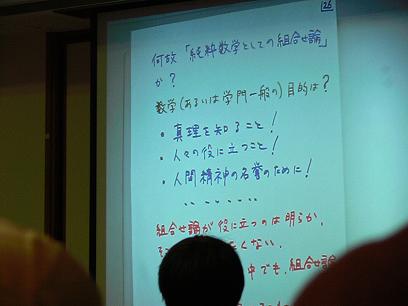 26
何故「純粋数学としての組合せ論」
か?
数学(あるいは学門一般の)目的は?
・真理を知ること!
・人々の役に立つこと!
・人間精神の名誉のために!
・・・・・・・・
組合せ論が役に立つのは明らか。
くない。
中でも、組合せ論